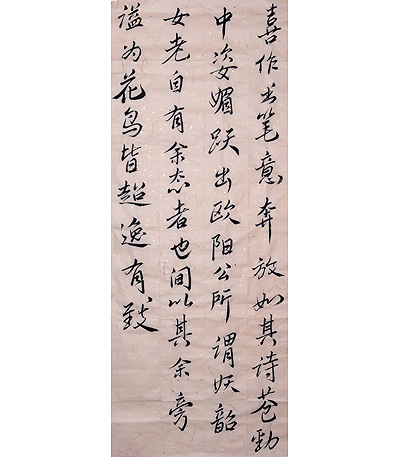 喜作书笔意奔放如其诗苍劲
中姿媚跃出欧阳公所谓妖韶
女老自有余态者也间以其余旁
溢为花鸟皆超逸有致